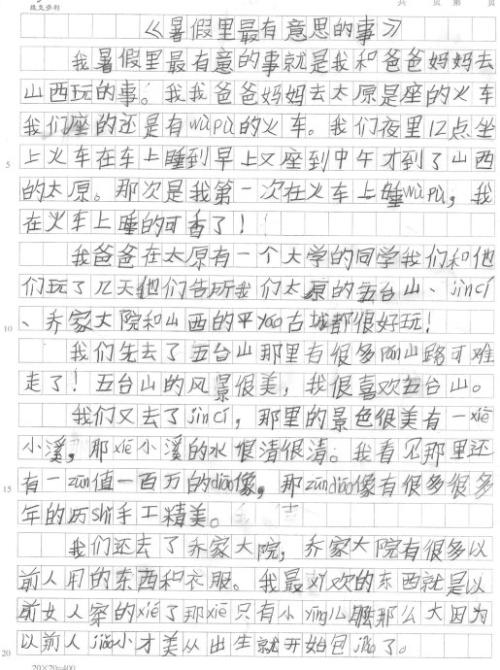 《暑假里最有意思的事》
我暑假里最有意的事就是我和爸爸妈妈去
山西玩的事。我我爸爸妈妈去太原是座的火车
我们座的还是有wòpù的火车。我们夜里12点坐
上火车在车上睡到早上又座到中午才到了山西
5
的太原。那次是我第一次在火车上睡wòpù，我
在火车上睡的可香了！！
我爸爸在太原有一个大学的同学我们和他
们玩了几天他们告所我们太原的五台山、jìncí
10
、乔家大院和山西的平yáo古城都很好玩！
我们先去了五台山那里有很多山路可难
走了！五台山的风景很美，我很喜欢五台山。
我们又去了jìncí，那里的景色很美有一xiē
小溪，那xiē小溪的水很清很清。我看见那里还
15
有一zūn值一百万的diāo像，那zūndiāo像有很多很多
年的历shǐ手工精美。
我们还去了乔家大院，乔家大院有很多以
前人用的东西和衣服。我最对欢的东西就是以
前女人穿的xié了那xié只有小yīng儿脚那么大因为
20
以前人jiǎo小才美从出生就开始包jiǎo了。
20×20=400